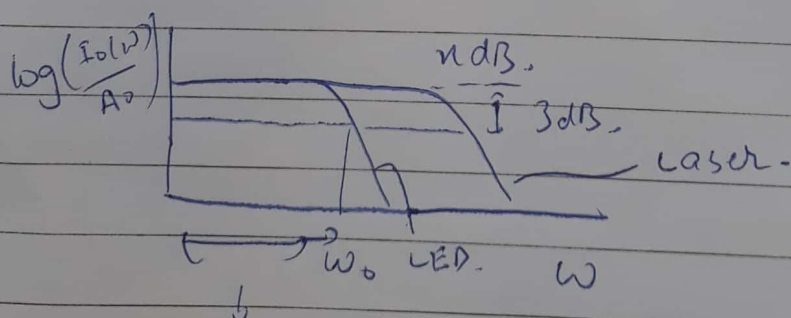 log(I₀(ω)/A₀)
n dB.
3dB.
Laser.
ω₀ LED. ω